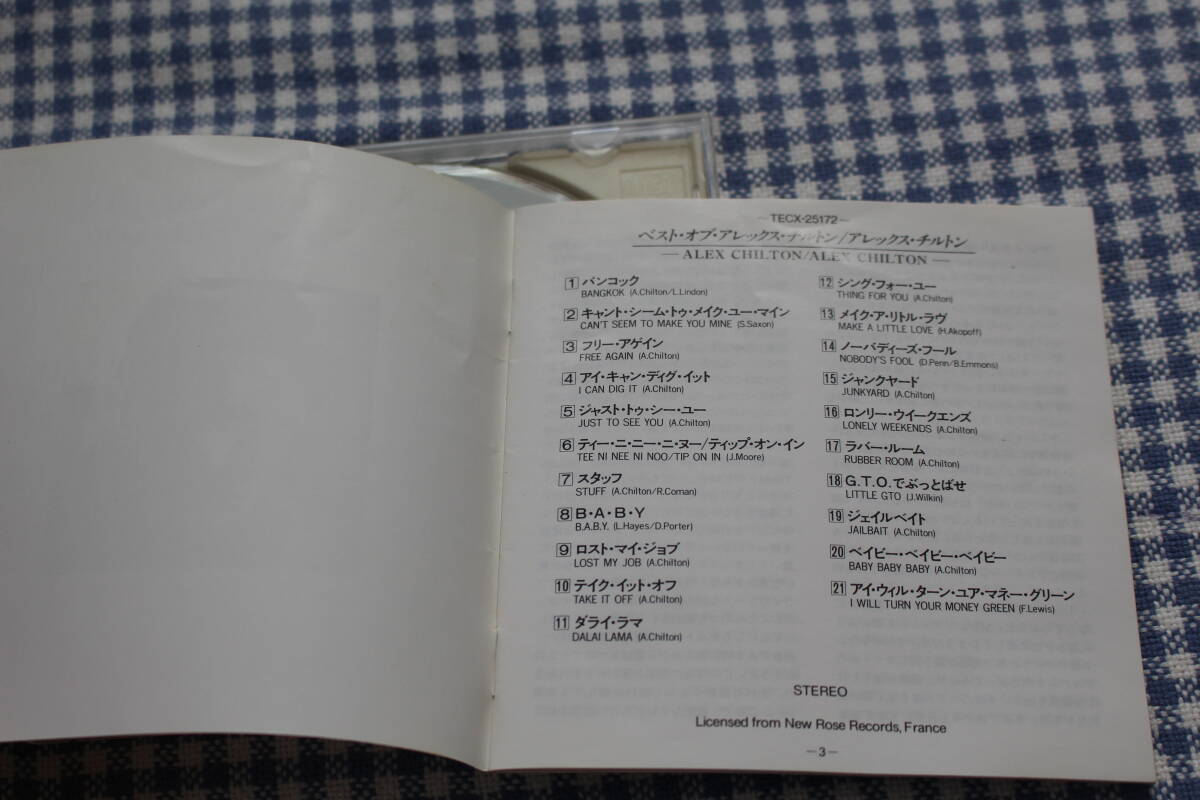 —TECX-25172—
ベスト・オブ・アレックス・チルトン/アレックス・チルトン
— ALEX CHILTON/ALEX CHILTON —
1 バンコック
BANGKOK (A.Chilton/L.Lindon)
2 キャント・シーム・トゥ・メイク・ユー・マイン
CAN'T SEEM TO MAKE YOU MINE (S.Saxon)
3 フリー・アゲイン
FREE AGAIN (A.Chilton)
4 アイ・キャン・ディグ・イット
I CAN DIG IT (A.Chilton)
5 ジャスト・トゥ・シー・ユー
JUST TO SEE YOU (A.Chilton)
6 ティー・ニ・ニー・ニ・ヌー/ティップ・オン・イン
TEE NI NEE NI NOO/TIP ON IN (J.Moore)
7 スタッフ
STUFF (A.Chilton/R.Coman)
8 B・A・B・Y
B.A.B.Y. (L.Hayes/D.Porter)
9 ロスト・マイ・ジョブ
LOST MY JOB (A.Chilton)
10 テイク・イット・オフ
TAKE IT OFF (A.Chilton)
11 ダライ・ラマ
DALAI LAMA (A.Chilton)
12 シング・フォー・ユー
THING FOR YOU (A.Chilton)
13 メイク・ア・リトル・ラヴ
MAKE A LITTLE LOVE (H.Akopoff)
14 ノーバディーズ・フール
NOBODY'S FOOL (D.Penn/B.Emmons)
15 ジャンクヤード
JUNKYARD (A.Chilton)
16 ロンリー・ウイークエンズ
LONELY WEEKENDS (A.Chilton)
17 ラバー・ルーム
RUBBER ROOM (A.Chilton)
18 G.T.O.でぶっとばせ
LITTLE GTO (J.Wilkin)
19 ジェイルベイト
JAILBAIT (A.Chilton)
20 ベイビー・ベイビー・ベイビー
BABY BABY BABY (A.Chilton)
21 アイ・ウィル・ターン・ユア・マネー・グリーン
I WILL TURN YOUR MONEY GREEN (F.Lewis)
STEREO
Licensed from New Rose Records, France
—3—